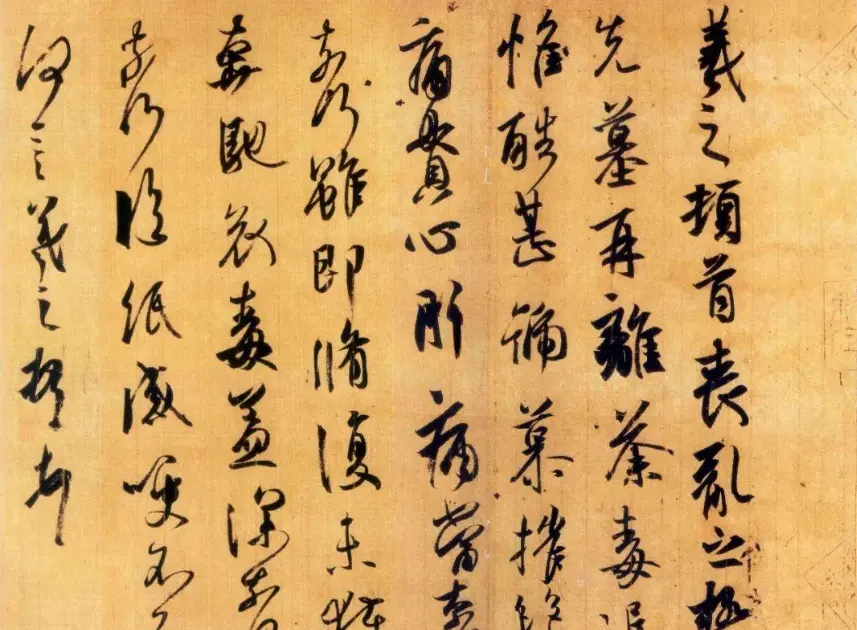 羲之頓首喪亂之極
先墓再離荼毒追
惟酷甚號慕摧絕
痛貫心肝痛當奈
奈何雖即脩復未獲
奔馳哀毒益深奈何
奈何臨紙感哽不
何言羲之頓首